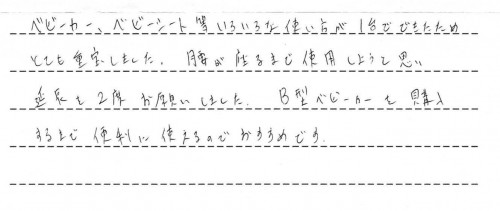 ベビーカー、ベビーシート等いろいろな使い方が1台でできたため
とても重宝しました。腰が座るまで使用しようと思い
延長を2度お願いしました。B型ベビーカーを購入
するまで便利に使えるのでおすすめです。